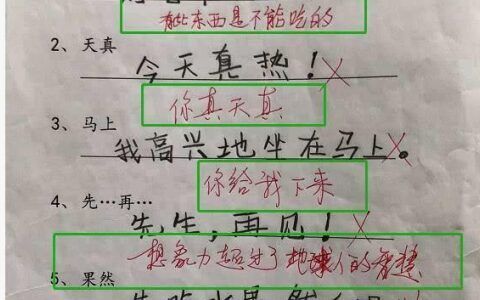 有些东西是不能吃的
2、天真
今天真热！
你真天真
3、马上
我高兴地坐在马上。
你给我下来
4、先…再…
先生，再见！
想象力超过了地球人的智慧
5、果然